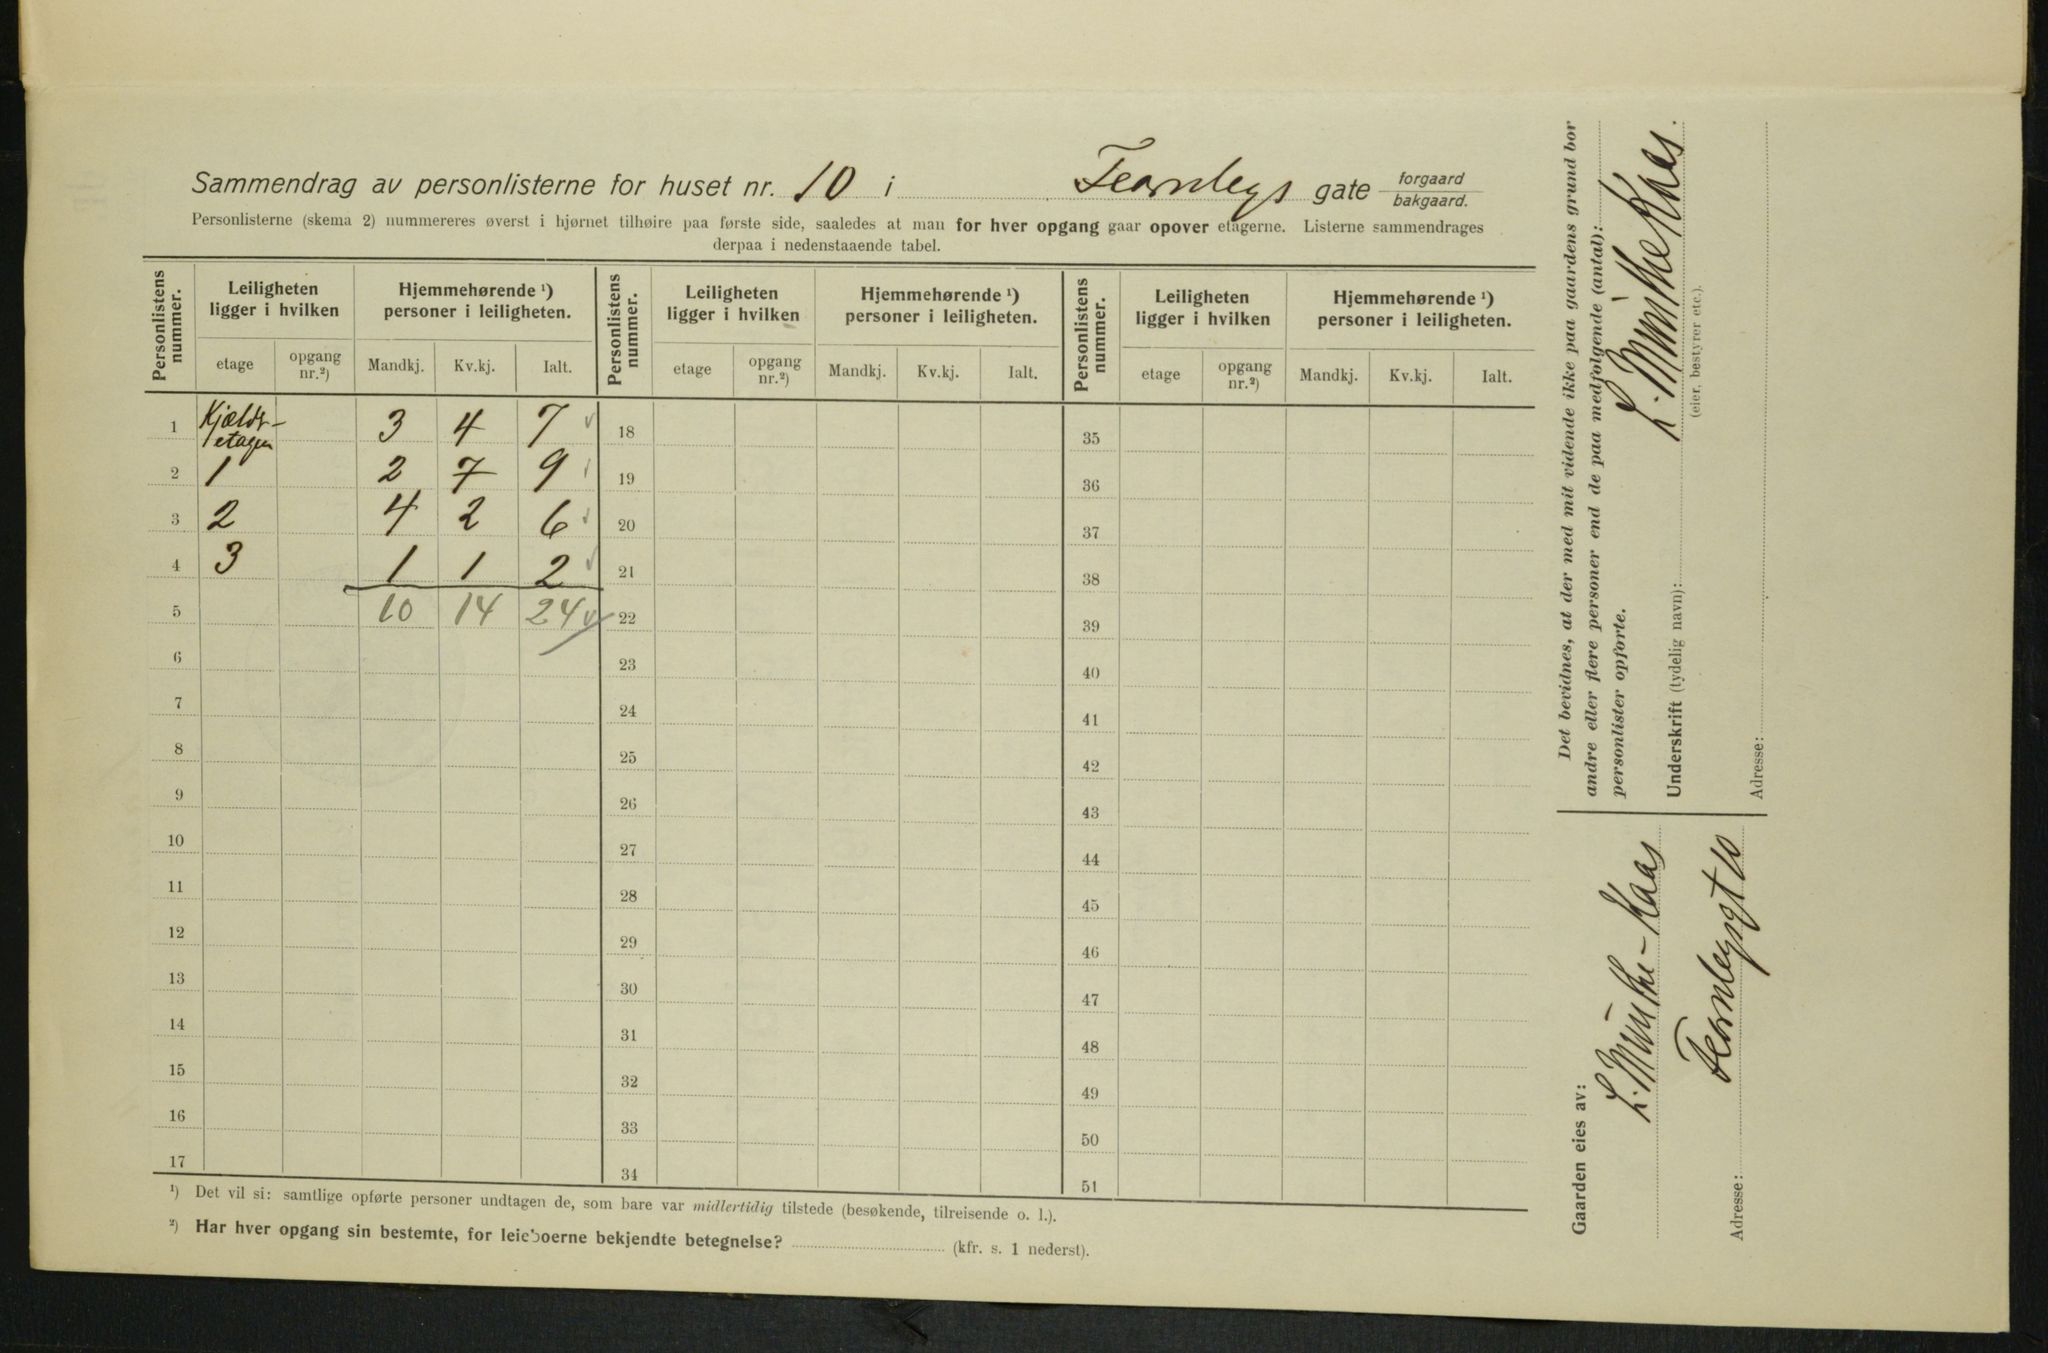 Sammendrag av personlisterne for huset nr. 10 i Fearnleys gate forgaard bakgaard.
Personlisterne (skema 2) nummereres øverst i hjørnet tilhøire paa første side, saaledes at man for hver opgang gaar opover etagerne. Listerne sammendrages
derpaa i nedenstaaende tabel.
Personlistens nummer. Leiligheten ligger i hvilken Hjemmehørende ¹) personer i leiligheten. Personlistens nummer. Leiligheten ligger i hvilken Hjemmehørende ¹) personer i leiligheten. Personlistens nummer. Leiligheten ligger i hvilken Hjemmehørende ¹) personer i leiligheten.
etage opgang nr.²) Mandkj. Kv.kj. Ialt. etage opgang nr.²) Mandkj. Kv.kj. Ialt. etage opgang nr.²) Mandkj. Kv.kj. Ialt.
1 etagen 3 4 7 18 35
2 1 2 7 9 19 36
3 2 4 2 6 20 37
4 3 1 1 2 21 38
5 10 14 24 22 39
6 23 40
7 24 41
8 25 42
9 26 43
10 27 44
11 28 45
12 29 46
13 30 47
14 31 48
15 32 49
16 33 50
17 34 51
¹) Det vil si: samtlige opførte personer undtagen de, som bare var midlertidig tilstede (besøkende, tilreisende o. l.).
²) Har hver opgang sin bestemte, for leieboerne bekjendte betegnelse? (kfr. s. 1 nederst).
Det bevidnes, at der med mit vidende ikke paa gaardens grund bor
andre eller flere personer end de paa medfølgende (antal):
personlister opførte.
Underskrift (tydelig navn): L. Münthe Kaas.
(eier, bestyrer etc.).
Adresse:
Gaarden eies av:
L. Münthe-Kaas
Adresse: Fearnleysgt 10